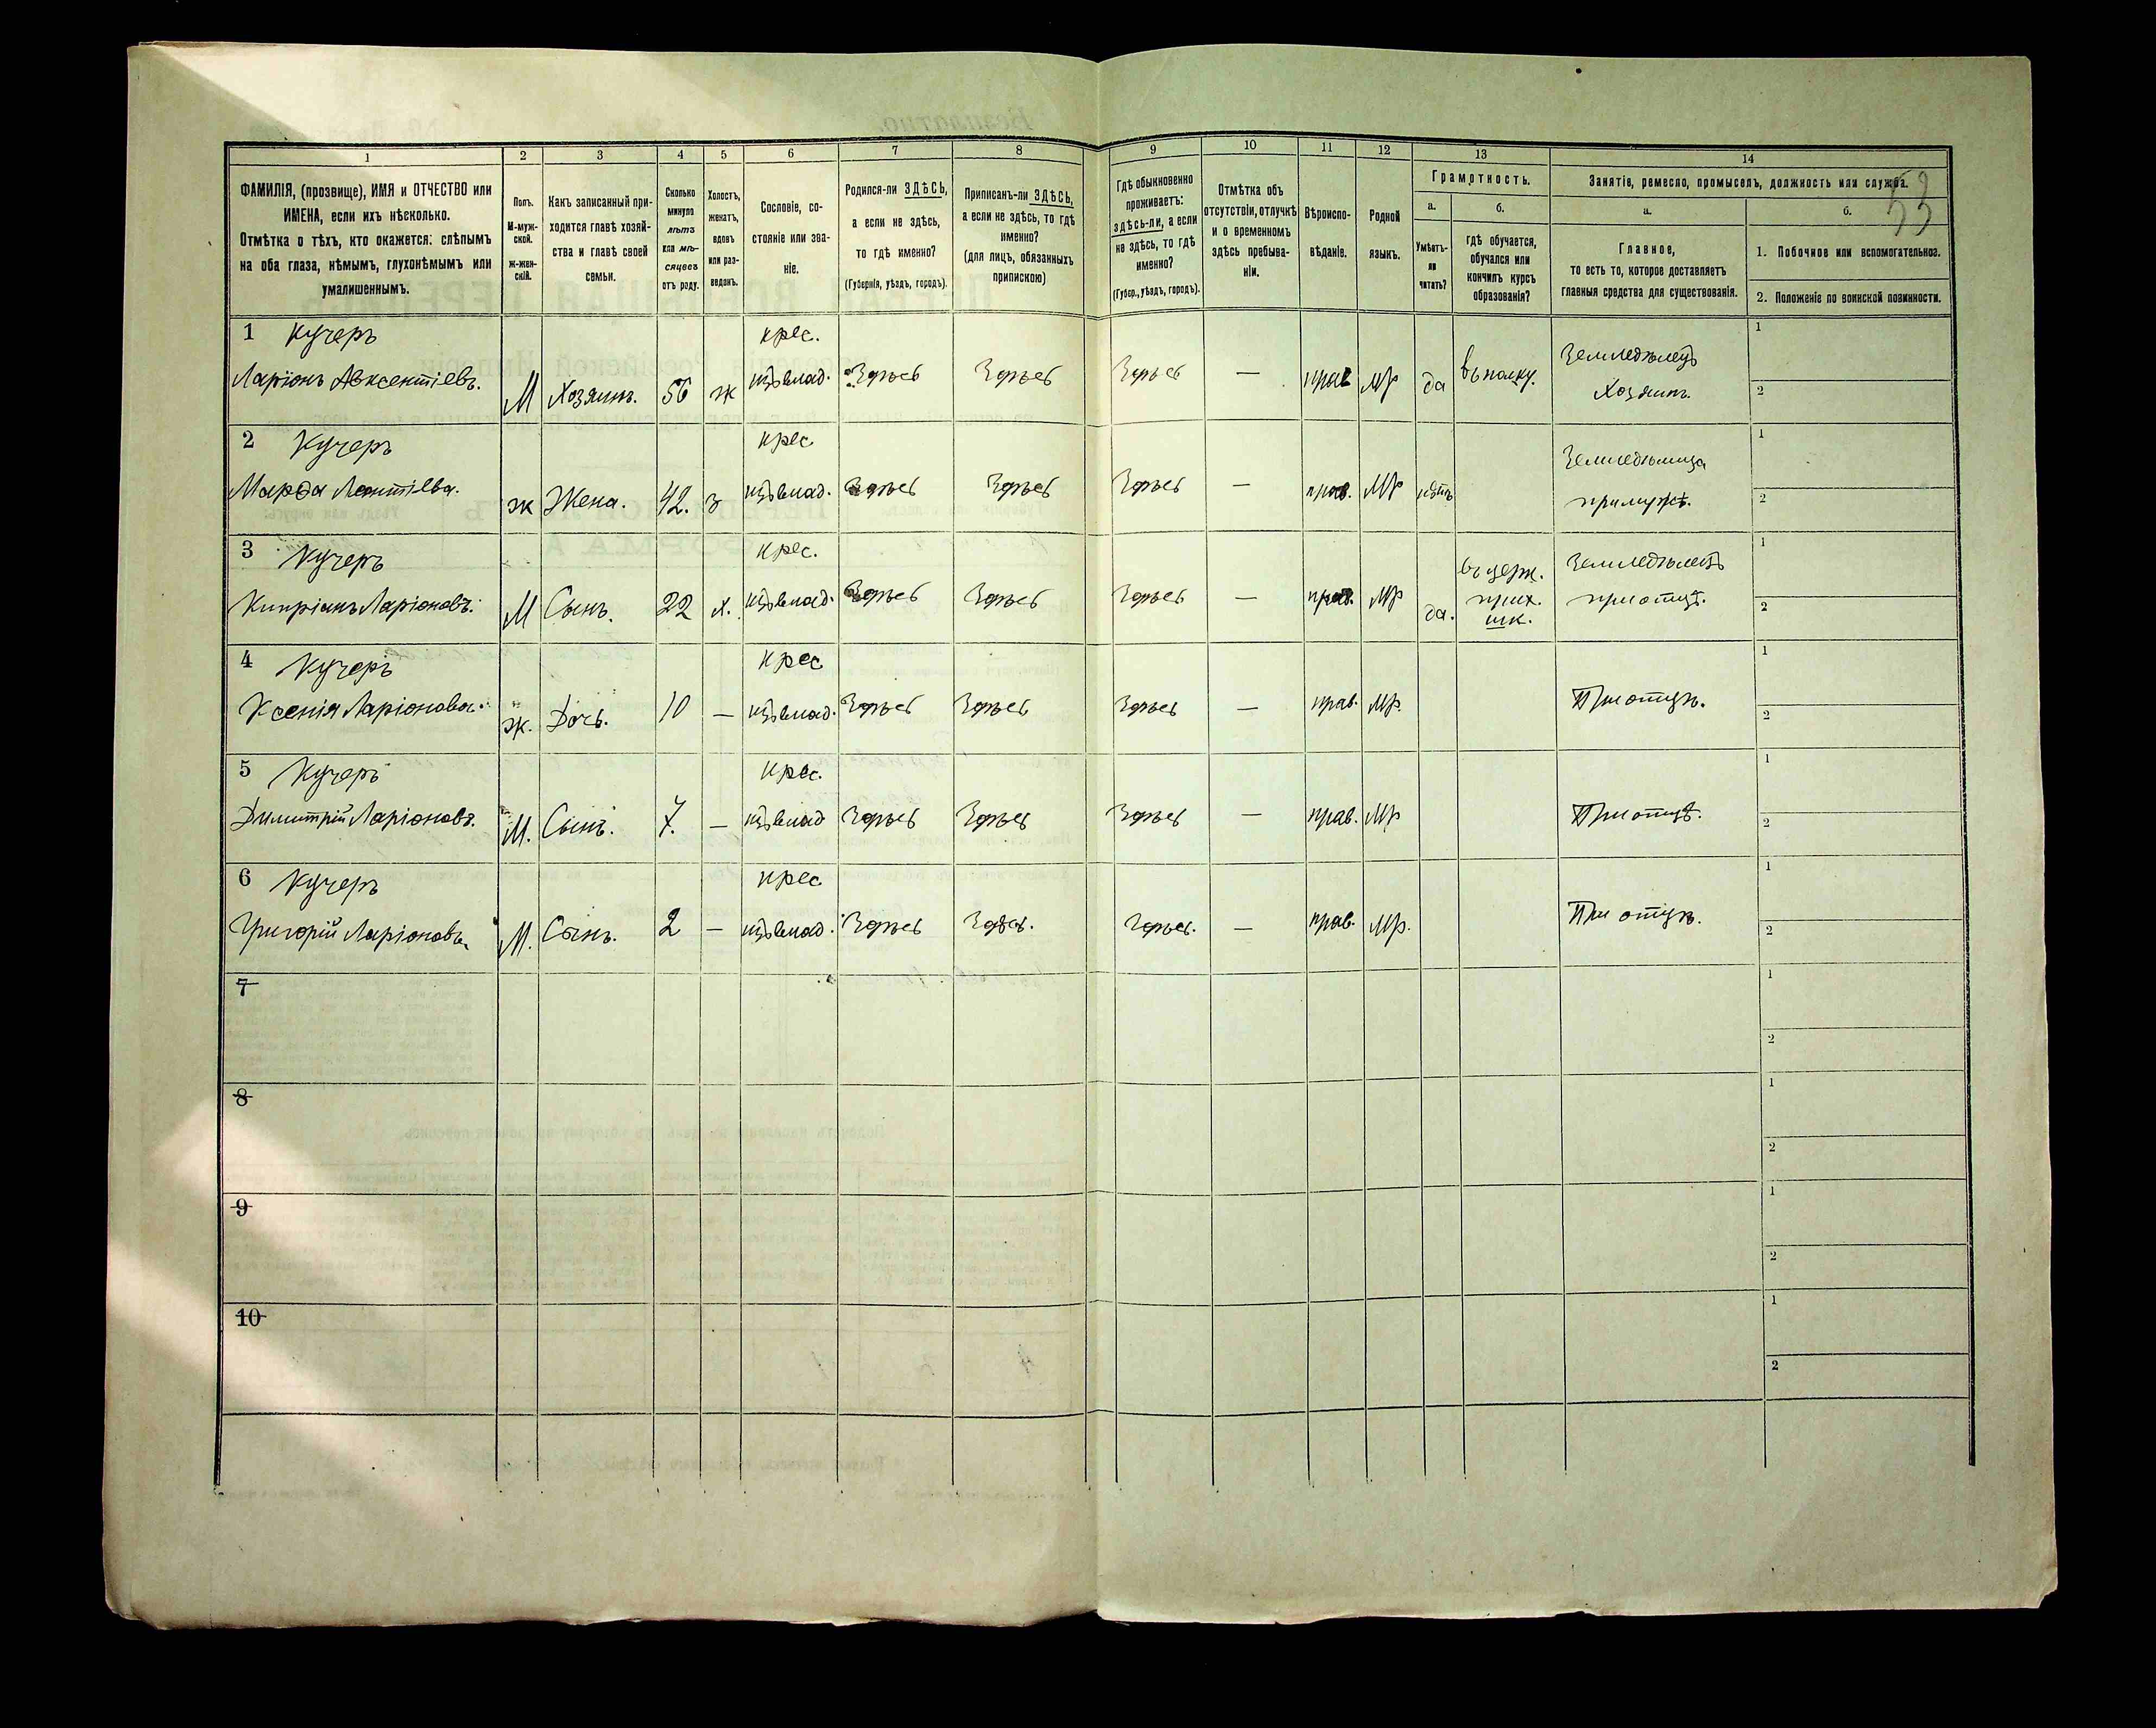 53
1 2 3 4 5 6 7 8 9 10 11 12 13 14
ФАМИЛІЯ, (прозвище), ИМЯ и ОТЧЕСТВО или
ИМЕНА, если ихъ нѣсколько.
Отмѣтка о тѣхъ, кто окажется: слѣпымъ
на оба глаза, нѣмымъ, глухонѣмымъ или
умалишеннымъ.
Полъ.
М-муж-
ской.
Ж-жен-
скій.
Какъ записанный при-
ходится главѣ хозяй-
ства и главѣ своей
семьи.
Сколько
минуло
лѣтъ
или мѣ-
сяцевъ
отъ роду.
Холостъ,
женатъ,
вдовъ
или раз-
веденъ.
Сословіе, со-
стояніе или зва-
ніе.
Родился-ли ЗДѢСЬ,
а если не здѣсь,
то гдѣ именно?
(Губернія, уѣздъ, городъ).
Приписанъ-ли ЗДѢСЬ,
а если не здѣсь, то гдѣ
именно?
(для лицъ, обязанныхъ
припискою)
Гдѣ обыкновенно
проживаетъ:
здѣсь-ли, а если
не здѣсь, то гдѣ
именно?
(Губер., уѣздъ, городъ).
Отмѣтка объ
отсутствіи, отлучкѣ
и о временномъ
здѣсь пребыва-
ніи.
Вѣроиспо-
вѣданіе.
Родной
языкъ.
Грамотность.
а.
Умѣетъ-
ли
читать?
б.
гдѣ обучается,
обучался или
кончилъ курсъ
образованія?
Занятіе, ремесло, промыселъ, должность или служба.
а.
Главное,
то есть то, которое доставляетъ
главныя средства для существованія.
б.
1. Побочное или вспомогательное.
2. Положеніе по воинской повинности.
1 Кучеръ крес. 1
Ларіонъ Авксентіевъ. М Хозяинъ. 56 ж изъ влад. Здѣсь Здѣсь Здѣсь — прав МР да въ полку. Земледѣлецъ
Хозяинъ. 2
2 Кучеръ крес 1
Марѳа Леонтіева. ж Жена. 42. з изъ влад. Здѣсь Здѣсь Здѣсь — прав. МР нѣтъ Земледѣлица
при мужѣ. 2
3 Кучеръ крес. 1
Кипріанъ Ларіоновъ. М Сынъ. 22 х. изъ влад. Здѣсь Здѣсь Здѣсь — прав. МР да. въ церк.
прих.
шк. Земледѣлецъ
при отцѣ. 2
4 Кучеръ крес 1
Ксенія Ларіонова. ж. Дочь. 10 — изъ влад. Здѣсь Здѣсь Здѣсь — прав. МР. При отцѣ. 2
5 Кучеръ крес. 1
Димитрій Ларіоновъ. М. Сынъ. 7. — изъ влад Здѣсь Здѣсь Здѣсь — прав. МР При отцѣ. 2
6 Кучеръ крес 1
Григорій Ларіоновъ. М. Сынъ. 2 — изъ влад. Здѣсь Здѣсь. Здѣсь. — прав. МР. При отцѣ. 2
7 1
2
8 1
2
9 1
2
10 1
2